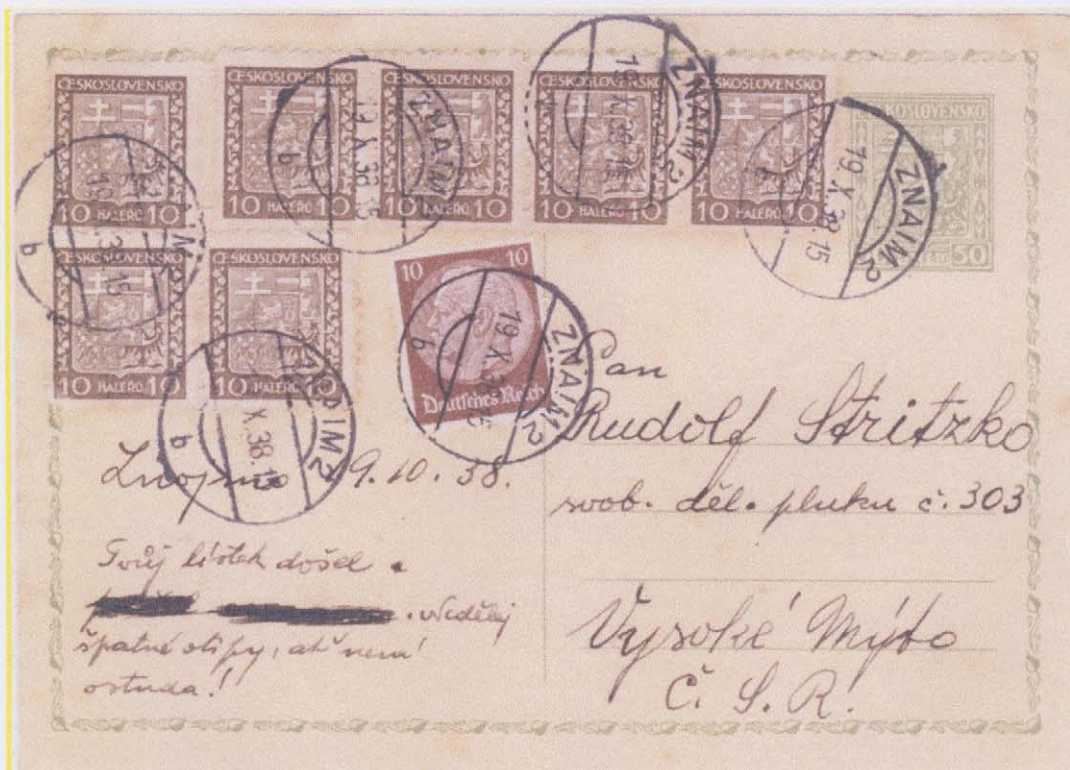 ČESKOSLOVENSKO
10 HALÉŘŮ 10
ČESKOSLOVENSKO
10 HALÉŘŮ 10
ČESKOSLOVENSKO
10 HALÉŘŮ 10
ČESKOSLOVENSKO
10 HALÉŘŮ 10
ČESKOSLOVENSKO
10 HALÉŘŮ 10
ČESKOSLOVENSKO
50
ČESKOSLOVENSKO
10 HALÉŘŮ 10
ČESKOSLOVENSKO
10 HALÉŘŮ 10
10 10
Deutsches Reich
ZNAIM 2
19.X.38.15
b
ZNAIM 2
19.X.38.15
b
ZNAIM 2
19.X.38.15
b
ZNAIM 2
19.X.38.15
b
ZNAIM 2
19.X.38.15
b
X.38.15
b
Znojmo 19.10.38.
Tvůj lístek došel.
Nedělej
špatné vtipy, ať není
ostuda!
Pan
Rudolf Stritzko
děl. pluku č. 303
Vysoké Mýto
Č. S. R.